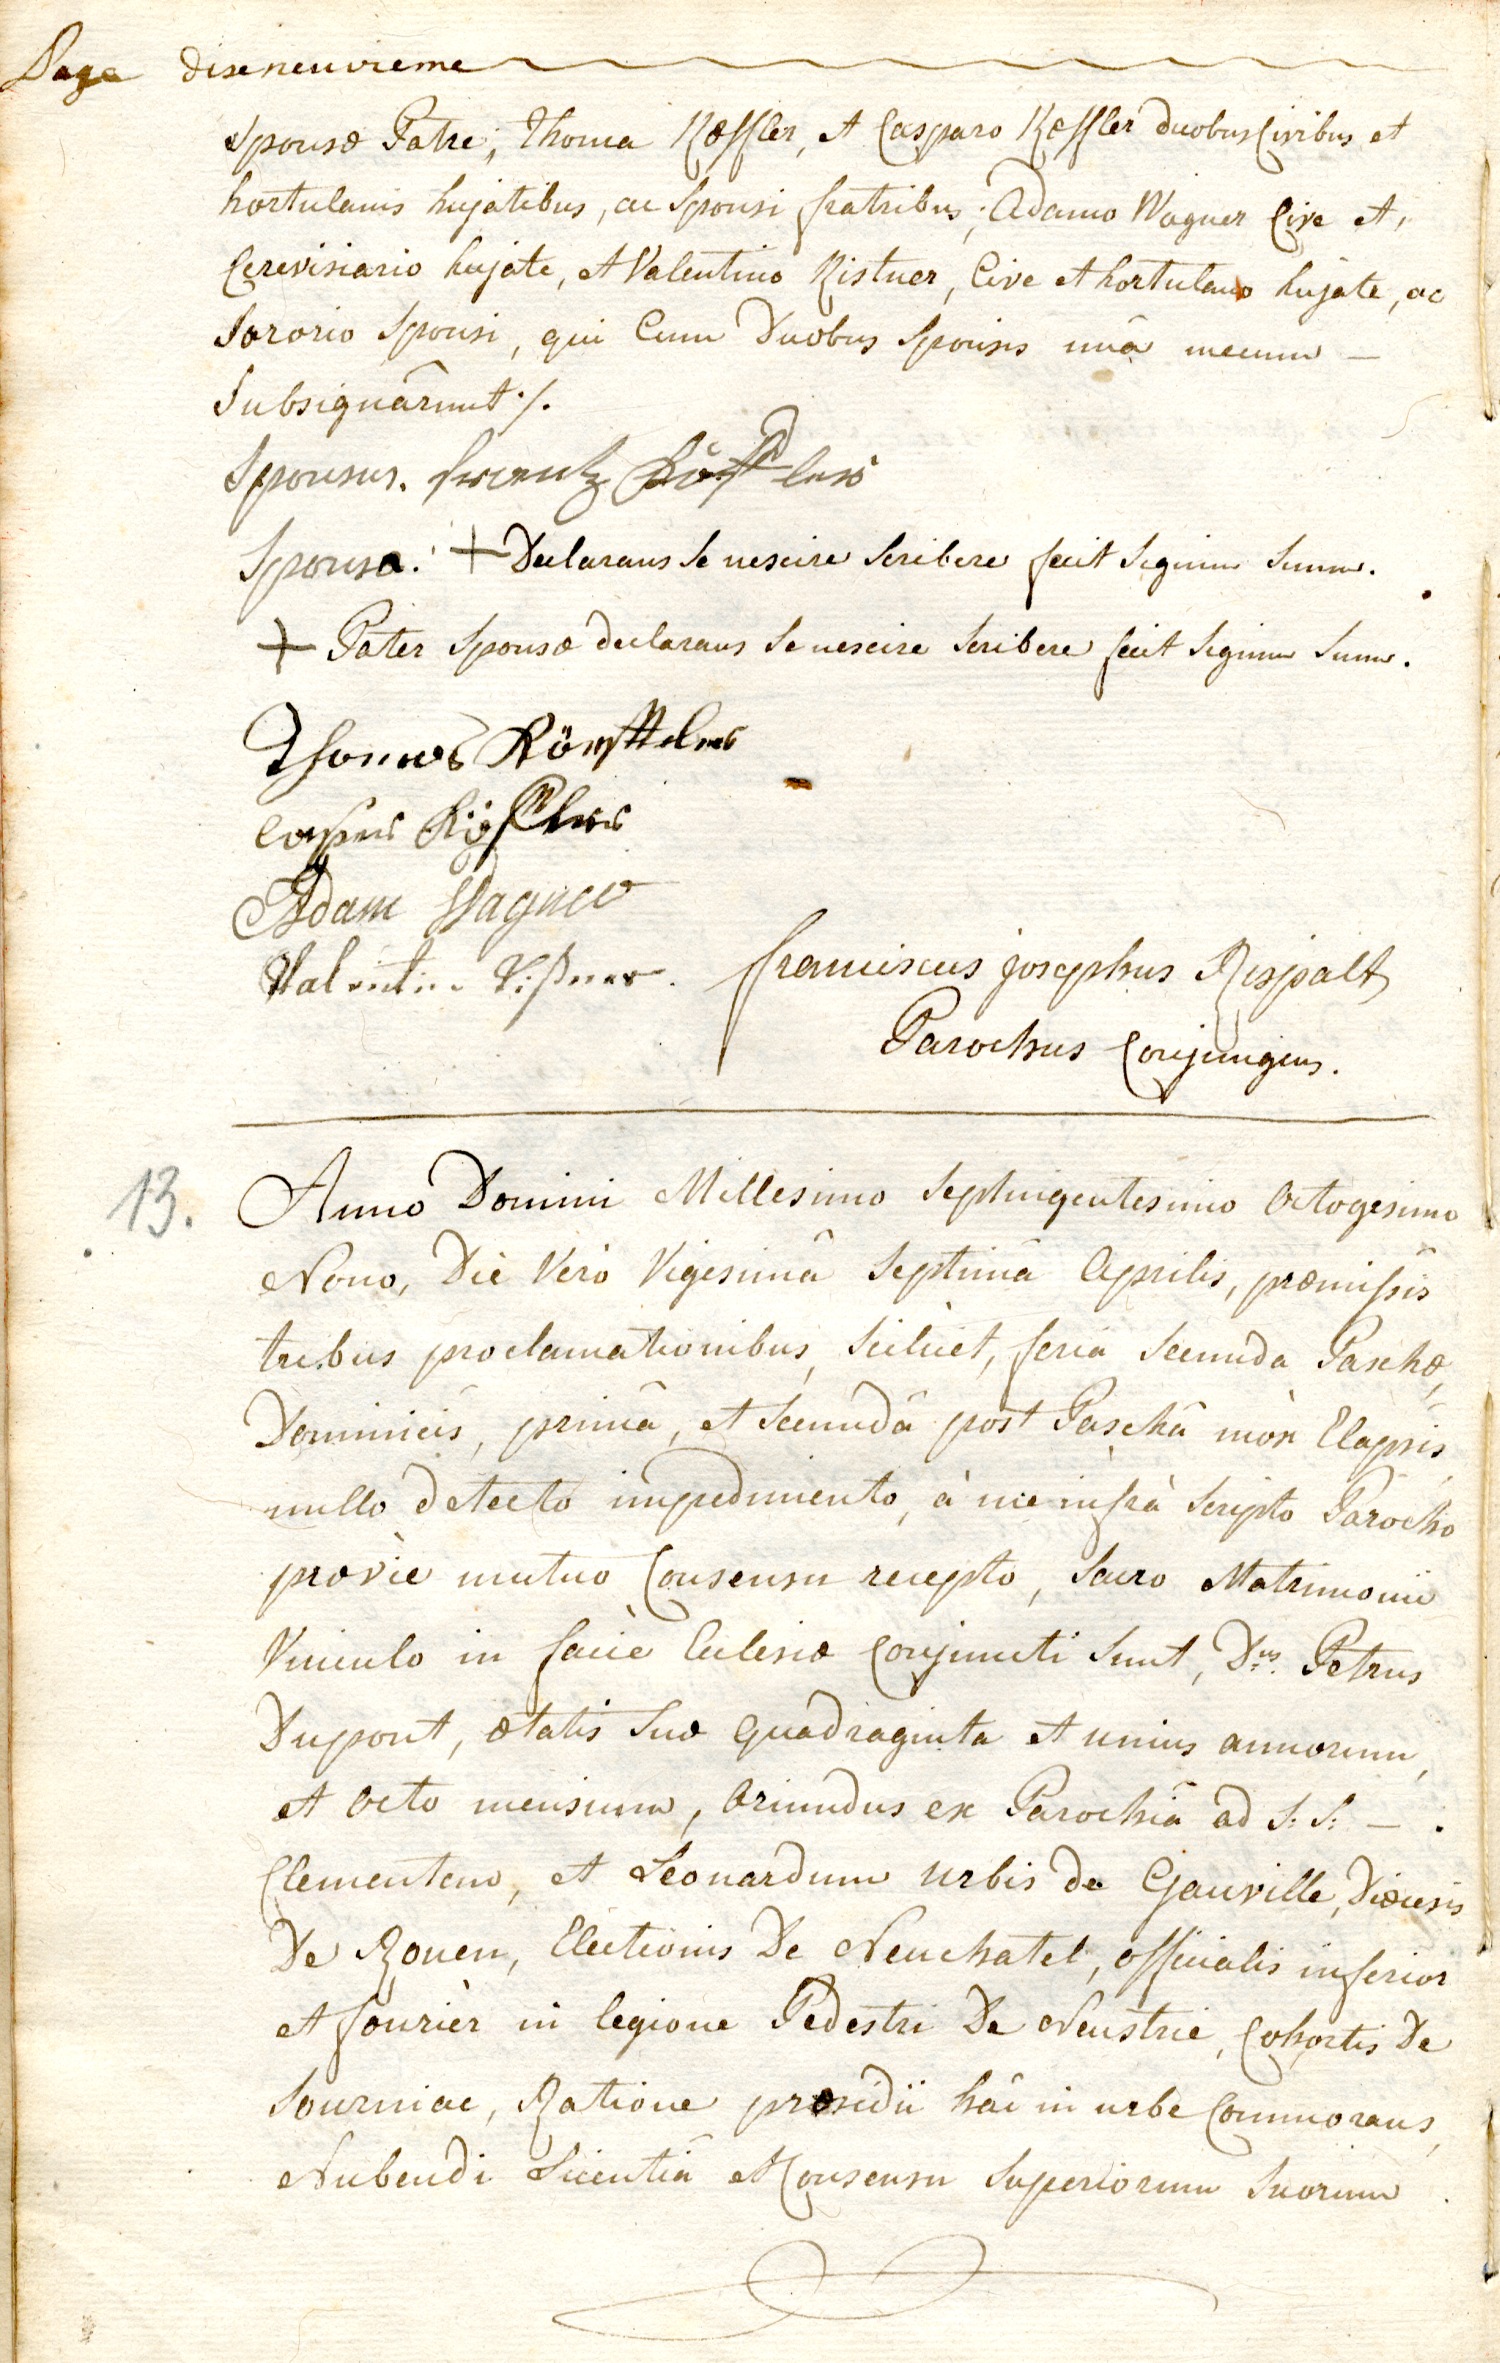 Page diseneuvieme
Sponsæ Patre; Thoma Kœffler, et Casparo Kœffler duobus Civibus et
hortulanis hujatibus, ac Sponsi fratribus; Adamo Wagner Cive et
Cerevisiario hujate, et Valentino Kistner, Cive et hortulano hujate, ac
Sororio Sponsi, qui Cum Duobus Sponsis unâ mecum –
Subsignârunt ./.
Sponsus. frantz Köffler
Sponsa. + Declarans Se nescire Scribere fecit Signum Suum.
+ Pater Sponsæ declarans Se nescire Scribere fecit Signum Suum.
Thomas
Casper Köffler
Adam Wagner
Valentin Kißner. franciscus josephus Rispalt
Parochus Conjungens.
13. Anno Domini Millesimo Septingentesimo Octogesimo
Nono, Die Verò Vigesimâ Septimâ Aprilis, præmissis
tribus proclamationibus, Scilicèt, feria Secunda Paschæ,
Dominicis, primâ, et Secundâ post Paschâ mòx Elapsis,
nullo detecto impedimento, à me infrà Scripto Parocho
prævie mutuo Consensu recepto, Sacro Matrimonii
Vinculo in faciè Ecclesiæ Conjuncti Sunt, Dnus. Petrus
Dupont, ætatis Suæ quadraginta et unius annorum,
et octo mensium, Oriundus ex Parochiâ ad S: S: –
Clementem, et Leonardum urbis de Gauville, Diœcesis
De Rouen, Electionis De Neuchatel, officialis inferior
et fourièr in legione Pedestri De Neustrie, Cohortis De
Sourniac, Ratione præsidii hâc in urbe Commorans,
Nubendi Licentiâ et Consensu Superiorum Suorum